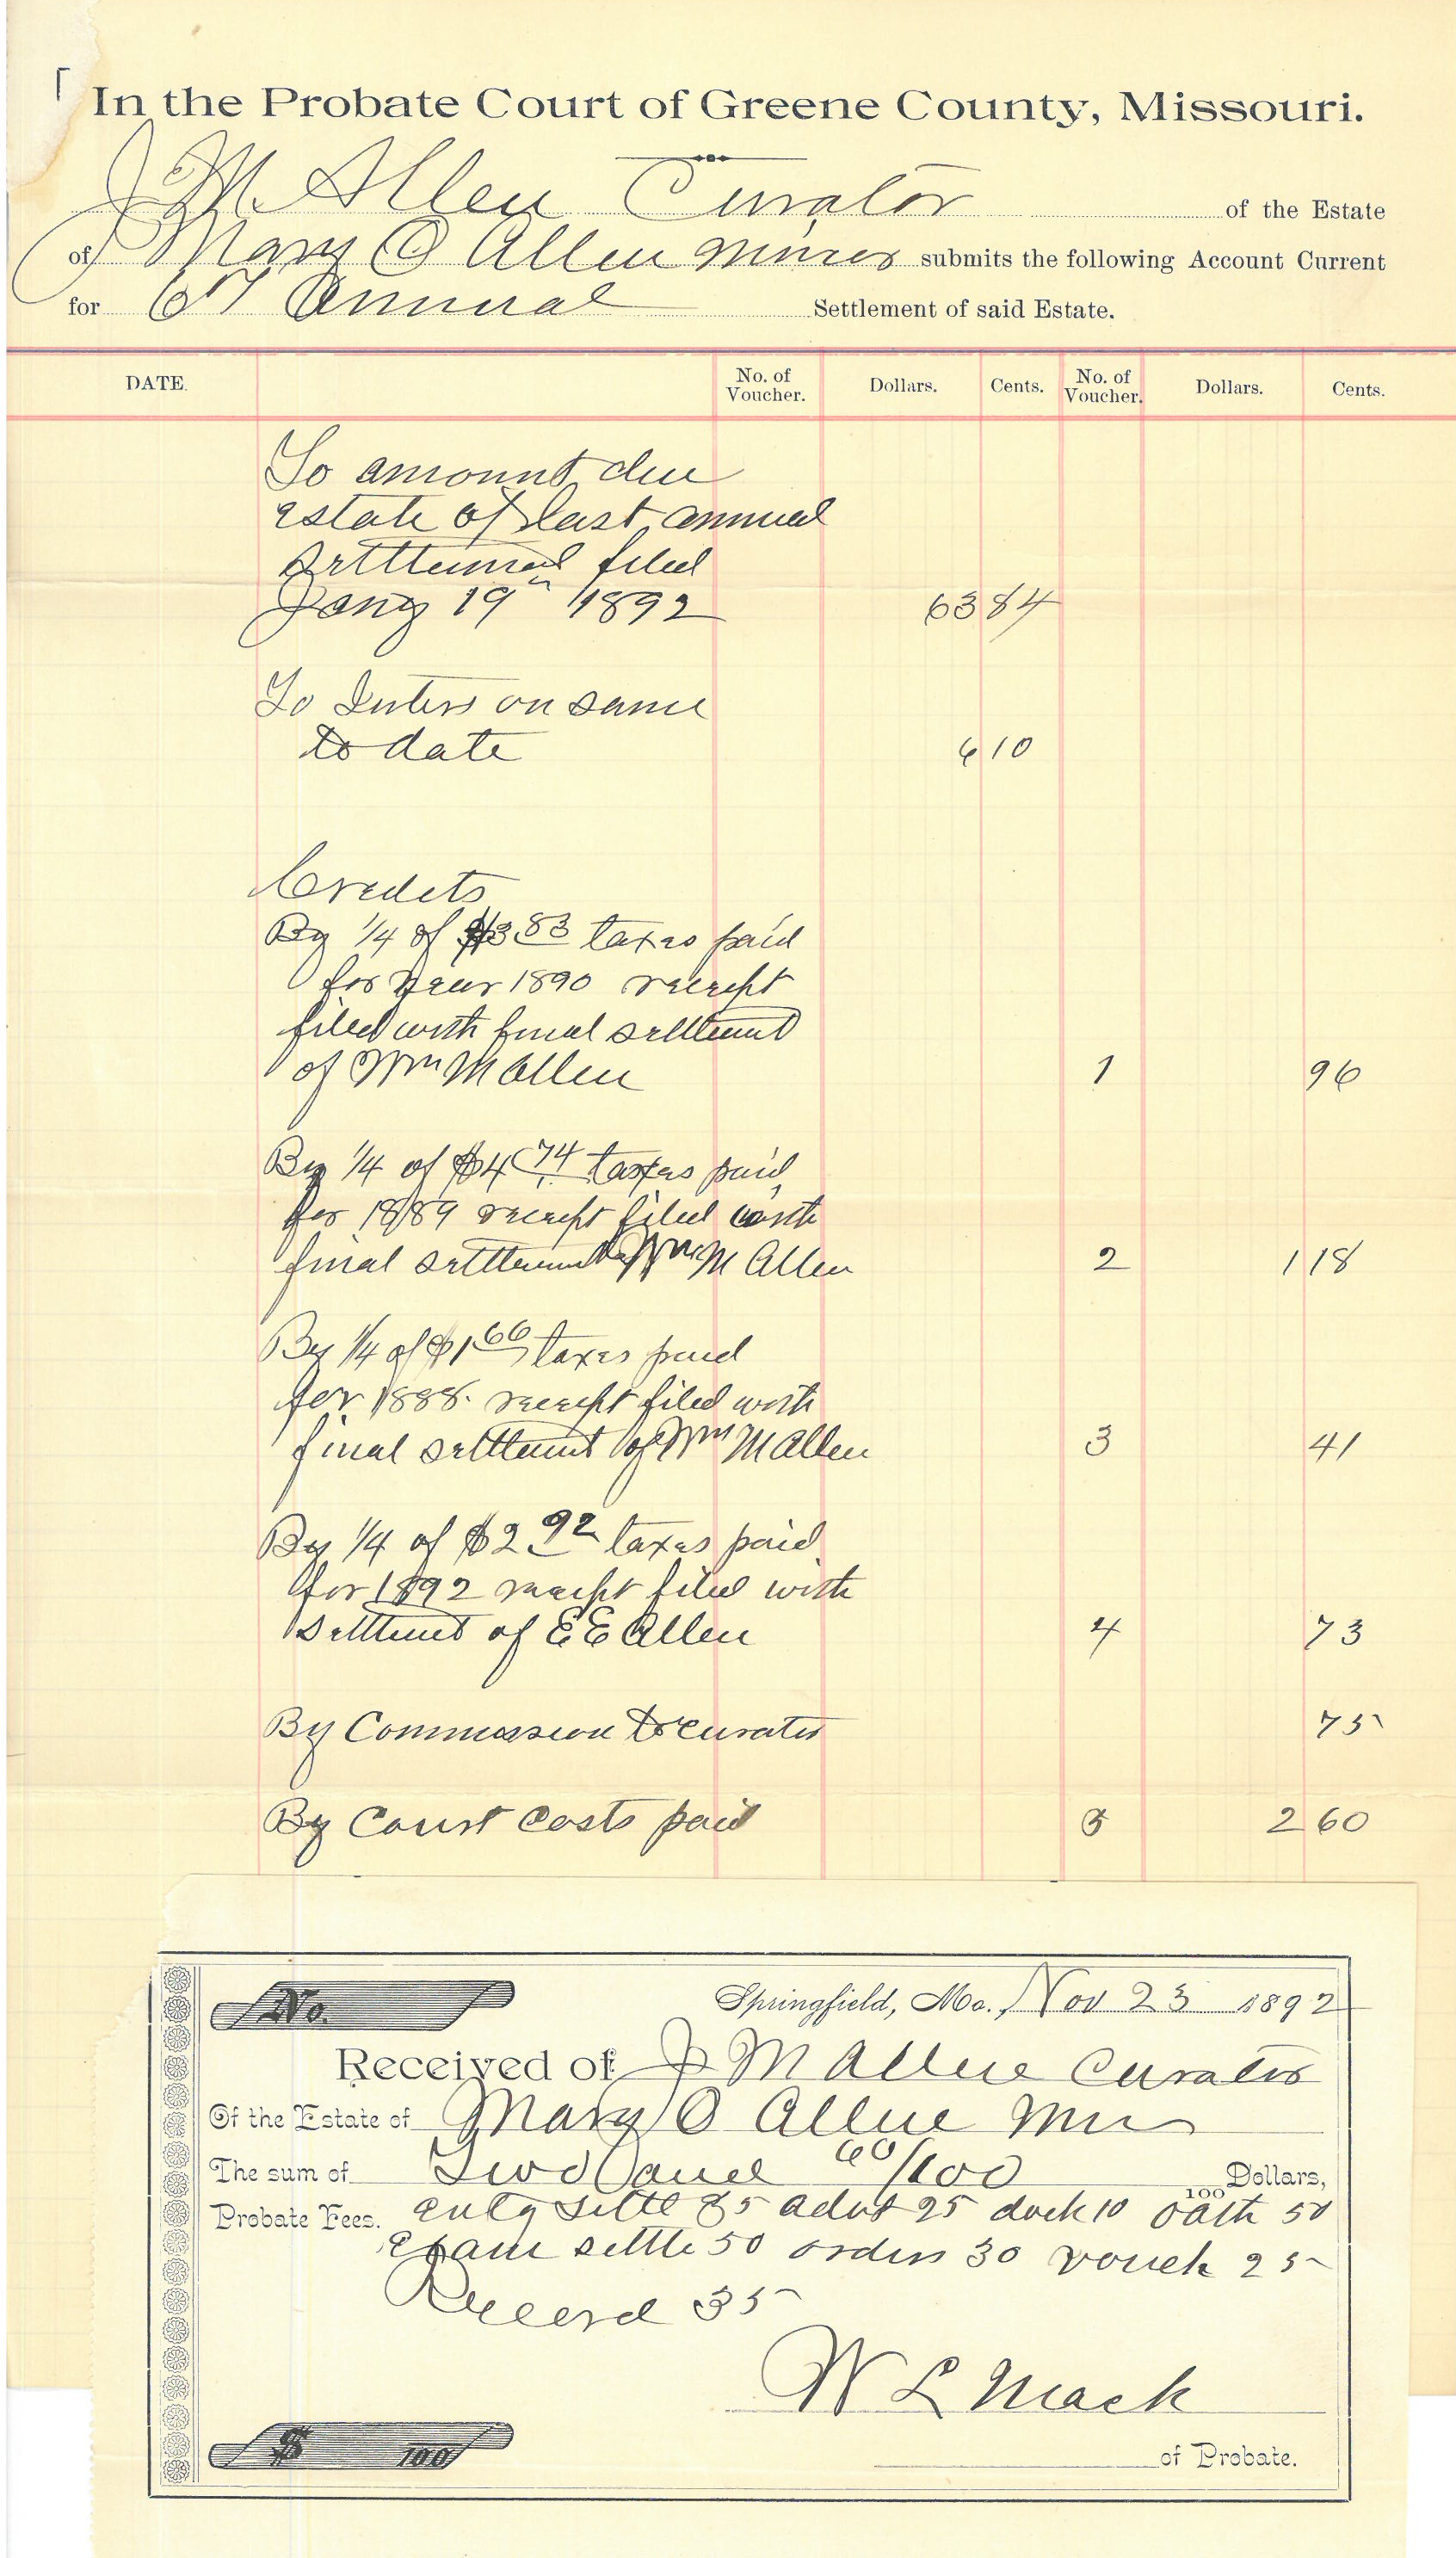 In the Probate Court of Greene County, Missouri.
J M Allen Curator of the Estate
of Mary O Allen Minor submits the following Account Current
for 6th Annual Settlement of said Estate.
DATE. No. of Voucher. Dollars. Cents. No. of Voucher. Dollars. Cents.
To amount due
estate of last annual
settlement filed
Jany 19th 1892 63 84
To Inters on same
to date 6 10
Credits
By 1/4 of $3 83 taxes paid
for year 1890 receipt
filed with final settlement
of Wm M Allen 1 96
By 1/4 of $4 74 taxes paid
for 1889 receipt filed with
final settlement of Wm M Allen 2 1 18
By 1/4 of $1 66 taxes paid
for 1888. receipt filed with
final settlement of Wm M Allen 3 41
By 1/4 of $2 92 taxes paid
for 1892 receipt filed with
settlement of E E Allen 4 73
By Commission to curator 75
By Court Costs paid 5 2 60
No. Springfield, Mo., Nov 23 1892
Received of J M Allen Curator
Of the Estate of Mary O Allen
The sum of Two and 60/100 100 Dollars,
Probate Fees. settl 35 25 dock 10 oath 50
Exam settle 50 orders 30 vouch 25
Record 35
W L Mack
$ 100 of Probate.